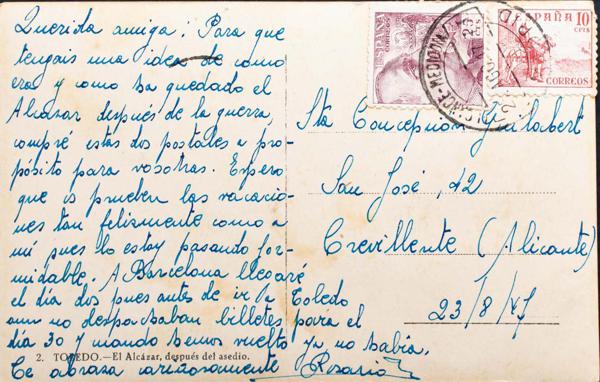 Querida amiga: Para que
tengais una idea de como
era y como ha quedado el
Alcázar después de la guerra,
compré estas dos postales a pro-
pósito para vosotras. Espero
que os prueben las vacacio-
nes tan felizmente como a
mí pues lo estoy pasando for-
midable. A Barcelona llegaré
el día dos pues antes de ir a Toledo
aun no despachaban billetes para el
día 30 y cuando hemos vuelto ya no había.
Te abraza cariñosamente
Rosario
2. TOLEDO.—El Alcázar, después del asedio.
ESPAÑA
CORREOS
ESPAÑA
10
CTS
CORREOS
Sta Concepción
San José, 12
Crevillente (Alicante)
23/8/47